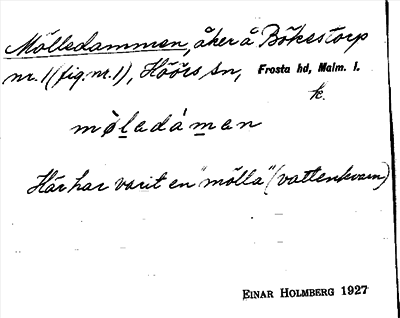 Mölledammen, åker å Bökestorp
nr. 1 (fig. nr. 1), Höörs sn, Frosta hd, Malm. l.
k.
mò̱ḻadáma̱n
Här har varit en "mölla" (vattenkvarn)
EINAR HOLMBERG 1927